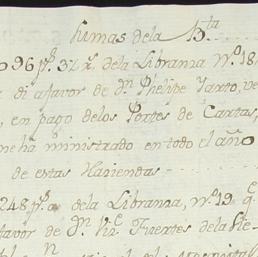 Sumas de la B.ta
096 p.s 3½ r. de la Libranza N.º 18
di a favor de D.n Phelipe Yarto, ve
, en pago de los Portes de Cartas,
me ha ministrado en todo el año
de estas Haciendas
248 p.s de la Libranza, N.º 19 q.e
favor de D.n Vic.e Fuertes de la Sie